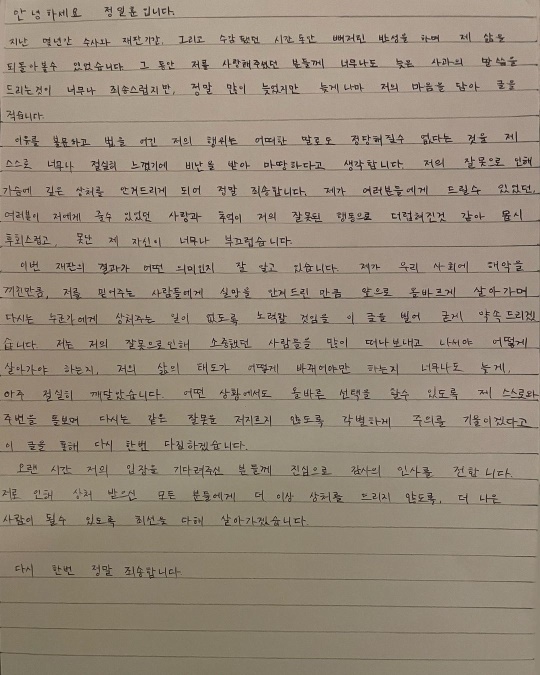 안녕하세요 정일훈입니다.
지난 몇년간 수사와 재판기간, 그리고 수감됐던 시간 동안 뼈저린 반성을 하며 제 삶을
되돌아볼수 있었습니다. 그 동안 저를 사랑해주셨던 분들께 너무나도 늦은 사과의 말씀을
드리는것이 너무나 죄송스럽지만, 정말 많이 늦었지만 늦게나마 저의 마음을 담아 글을
적습니다.
이유를 불문하고 법을 어긴 저의 행위는 어떠한 말로도 정당해질수 없다는 것을 제
스스로 너무나 절실히 느꼈기에 비난을 받아 마땅하다고 생각합니다. 저의 잘못으로 인해
가슴에 깊은 상처를 안겨드리게 되어 정말 죄송합니다. 제가 여러분들에게 드릴수 있었던,
여러분이 저에게 줄수 있었던 사랑과 추억이 저의 잘못된 행동으로 더럽혀진것 같아 몹시
후회스럽고, 못난 제 자신이 너무나 부끄럽습니다.
이번 재판의 결과가 어떤 의미인지 잘 알고 있습니다. 제가 우리 사회에 해악을
끼친만큼, 저를 믿어주는 사람들에게 실망을 안겨드린 만큼 앞으로 올바르게 살아가며
다시는 누군가에게 상처주는 일이 없도록 노력할 것임을 이 글을 빌어 굳게 약속드리겠
습니다. 저는 저의 잘못으로인해 소중했던 사람들을 많이 떠나보내고 나서야 어떻게
살아가야 하는지, 저의 삶의 태도가 어떻게 바뀌어야만 하는지 너무나도 늦게,
아주 절실히 깨달았습니다. 어떤 상황에서도 올바른 선택을 할수 있도록 제 스스로와
주변을 돌보며 다시는 같은 잘못을 저지르지 않도록 각별하게 주의를 기울이겠다고
이 글을 통해 다시 한번 다짐하겠습니다.
오랜 시간 저의 입장을 기다려주신 분들께 진심으로 감사의 인사를 전합니다.
저로 인해 상처 받으신 모든 분들에게 더 이상 상처를 드리지 않도록, 더 나은
사람이 될수 있도록 최선을 다해 살아가겠습니다.
다시 한번 정말 죄송합니다.